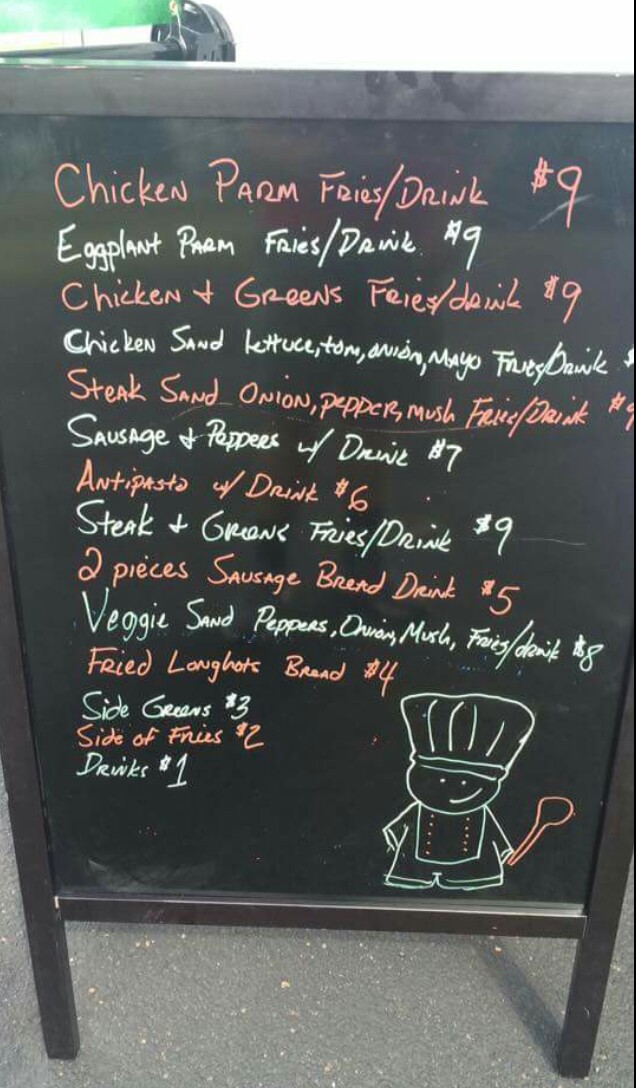 Chicken Parm Fries/Drink $9
Eggplant Parm Fries/Drink $9
Chicken + Greens Fries/drink $9
Chicken Sand Lettuce, tom, onion, Mayo Fries/Drink $
Steak Sand Onion, pepper, mush Fries/Drink $9
Sausage & Peppers w/ Drink $7
Antipasto w/ Drink $6
Steak + Greens Fries/Drink $9
2 pieces Sausage Bread Drink $5
Veggie Sand Peppers, Onion, Mush, Fries/drink $8
Fried Longhots Bread $4
Side Greens $3
Side of Fries $2
Drinks $1